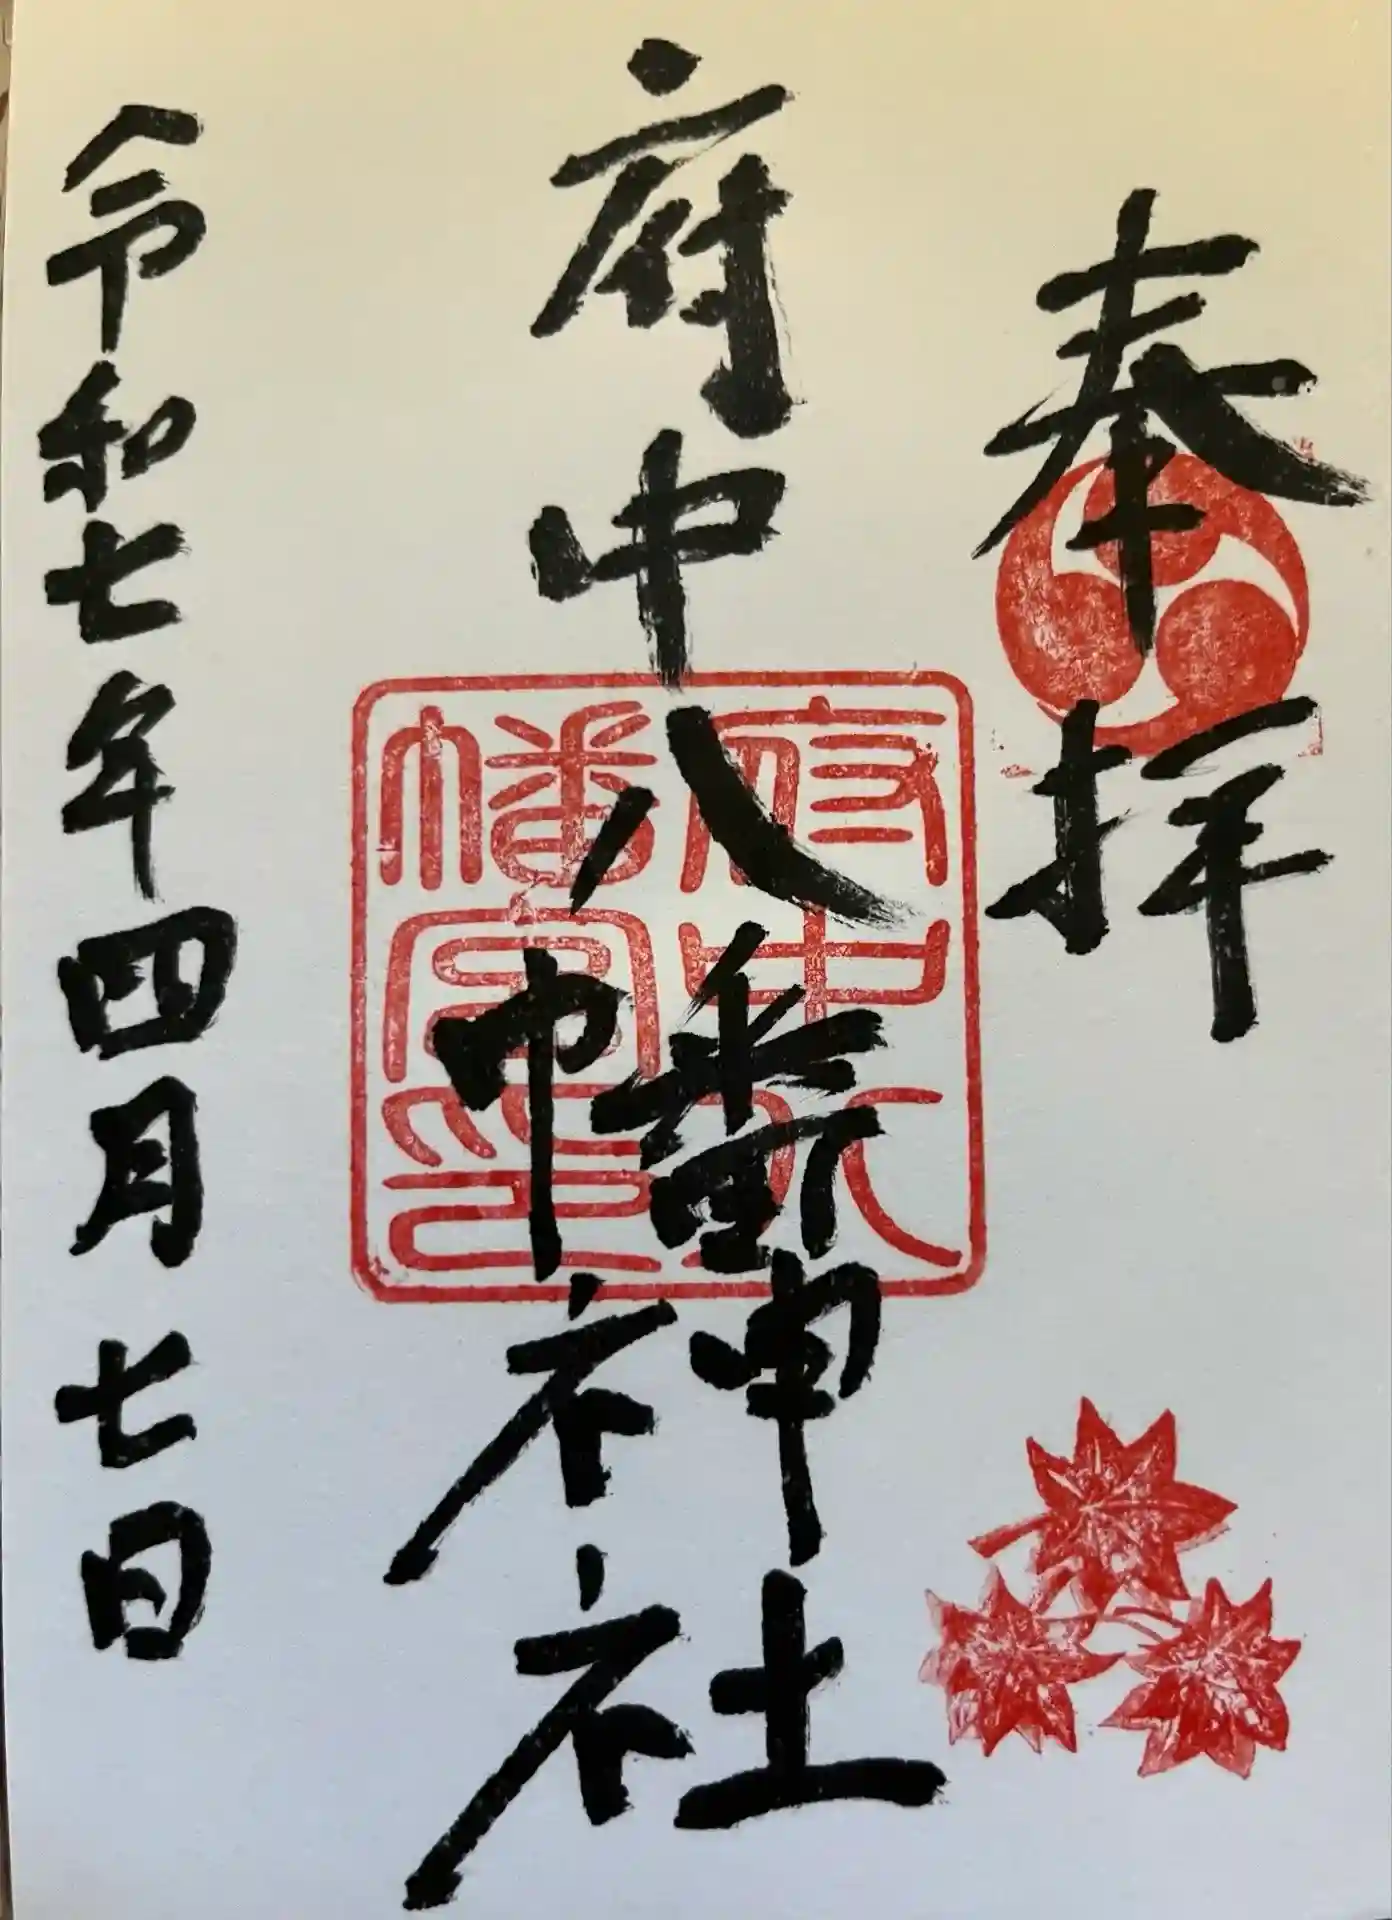 奉拝
府中八幡神社
府中八
幡宮印
令和七年四月七日